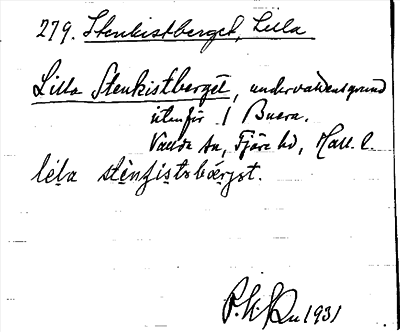 279. Stenkistberget, Lilla
Lilla Stenkistberget, undervattensgrund
utanför 1 Buera.
Vallda sn, Fjäre hd, Hall. l.
lɩla stènʃistəbærgət.
P. 1931